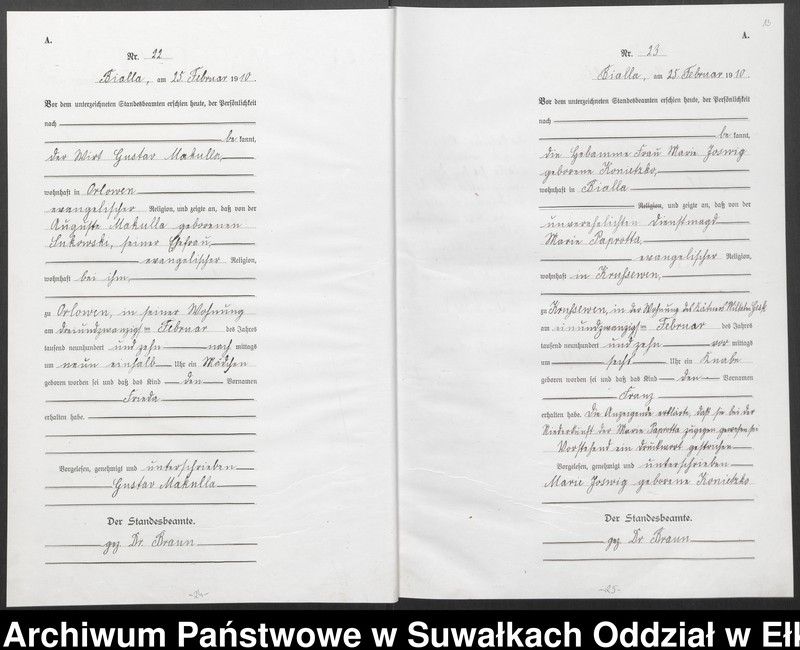 A.
Nr. 22
Bialla, am 25. Februar 1910.
Vor dem unterzeichneten Standesbeamten erschien heute, der Persönlichkeit
nach
be kannt,
der Wirt Gustav Makulla,
wohnhaft in Orlowen
evangelischer Religion, und zeigte an, daß von der
Auguste Makulla geborenen
Sukowski, seiner Ehefrau,
evangelischer Religion,
wohnhaft bei ihm,
zu Orlowen, in seiner Wohnung
am dreiundzwanzigsten Februar des Jahres
tausend neunhundert und zehn nach mittags
um neun einhalb Uhr ein Mädchen
geboren worden sei und daß das Kind den Vornamen
Frieda
erhalten habe.
Vorgelesen, genehmigt und unterschrieben
Gustav Makulla
Der Standesbeamte.
gez. Dr. Braun
23
A.
Nr. 23
Bialla, am 25. Februar 1910.
Vor dem unterzeichneten Standesbeamten erschien heute, der Persönlichkeit
nach
be kannt,
die Hebamme Frau Marie Joswig
geborene Konietzko,
wohnhaft in Bialla
Religion, und zeigte an, daß von der
unverehelichten Dienstmagd
Marie Paprotta,
evangelischer Religion,
wohnhaft in Krussewen,
zu Krussewen, in der Wohnung des Wilhelm
am einundzwanzigsten Februar des Jahres
tausend neunhundert und zehn vor mittags
um sechs Uhr ein Knabe
geboren worden sei und daß das Kind den Vornamen
Franz
erhalten habe. Die Anzeigende erklärte, daß sie bei der
Niederkunft der Marie Paprotta zugegen gewesen sei
Vorstehend ein Druckwort gestrichen
Vorgelesen, genehmigt und unterschrieben
Marie Joswig geborene Konietzko
Der Standesbeamte.
gez. Dr. Braun
-24-
-25-
Archiwum Państwowe w Suwałkach Oddział w Ełk